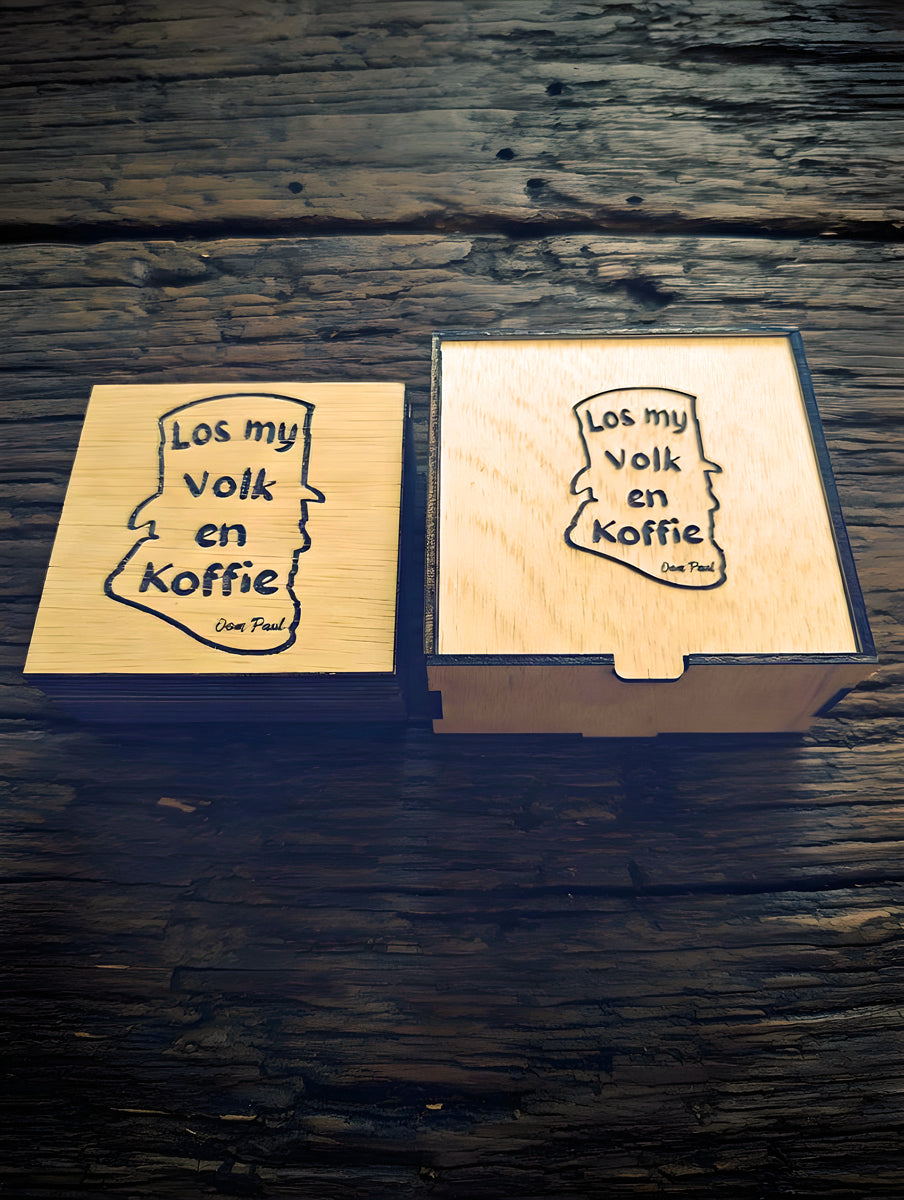 Los my
Volk
en
Koffie
Oom Paul
Los my
Volk
en
Koffie
Oom Paul